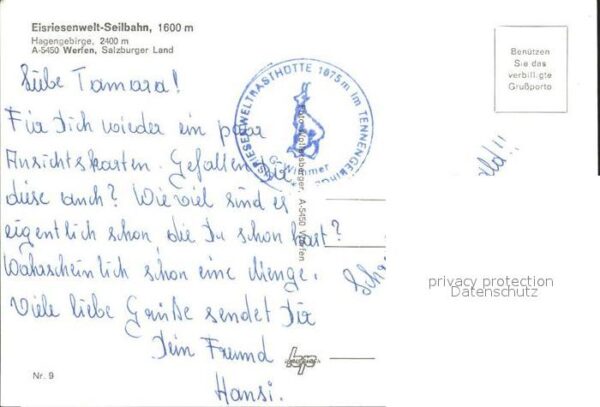 Eisriesenwelt-Seilbahn, 1600 m
Hagengebirge, 2400 m
A-5450 Werfen, Salzburger Land
Liebe Tamara!
Für Dich wieder ein paar
Ansichtskarten. Gefallen Dir
diese auch? Wie viel sind es
eigentlich schon, die Du schon hast?
Wahrscheinlich schon eine Menge.
Viele liebe Grüße sendet Dir
Dein Freund
Hansi.
Nr. 9
EISRIESENWELTRASTHÜTTE 1075m im TENNENGEBIRGE
G. Wimmer
A-5450 Werfen
Benützen
Sie das
verbilligte
Grußporto
privacy protection
Datenschutz